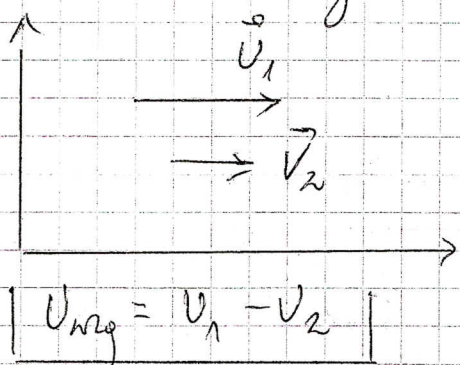 v₁
V₂
v_wzg = v₁ - v₂